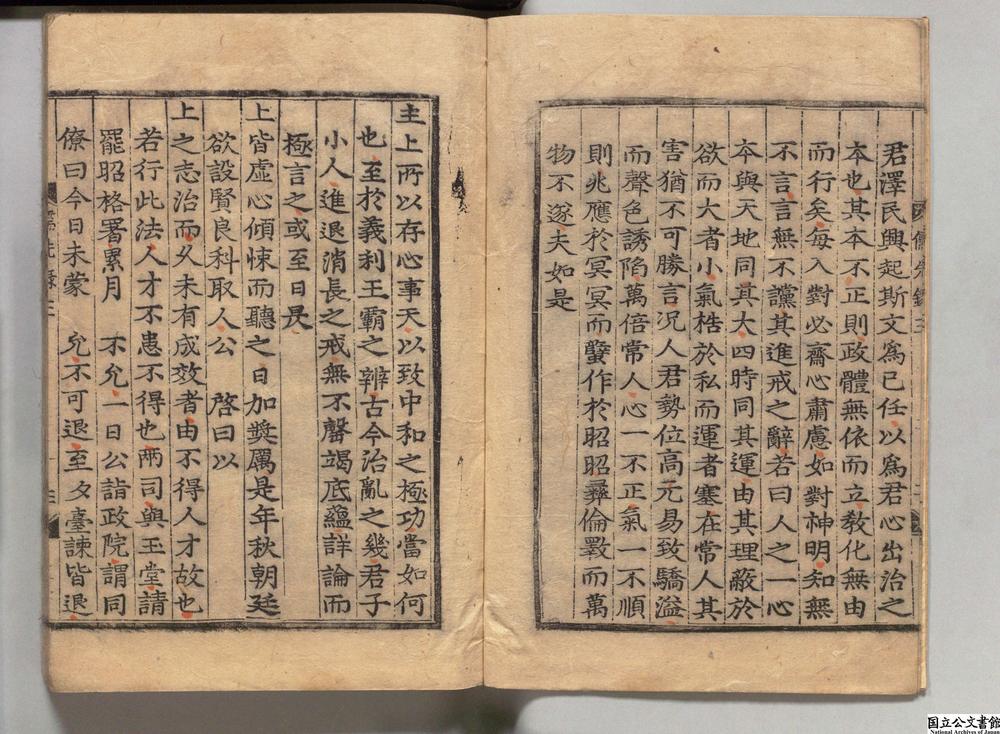 君澤民興起斯文爲己任以爲君心出治之
本也其本不正則政體無依而立敎化無由
而行矣每入對必齋心肅慮如對神明知無
不言言無不讜其進戒之辭若曰人之一心
本與天地同其大四時同其運由其理蔽於
欲而大者小氣梏於私而運者塞在常人其
害猶不可勝言況人君勢位高亢易致驕溢
而聲色誘陷萬倍常人心一不正氣一不順
則兆應於冥冥而孼作於昭昭彝倫斁而萬
物不遂夫如是
主上所以存心事天以致中和之極功當如何
也至於義利王霸之辨古今治亂之幾君子
小人進退消長之戒無不罄竭底蘊詳論而
極言之或至日昃
上皆虛心傾悚而聽之日加奬厲是年秋朝廷
欲設賢良科取人公 啓曰以
上之志治而久未有成效者由不得人才故也
若行此法人才不患不得也兩司與玉堂請
罷昭格署累月 不允一日公詣政院謂同
僚曰今日未蒙 允不可退至夕臺諫皆退
国立公文書館
National Archives of Japan